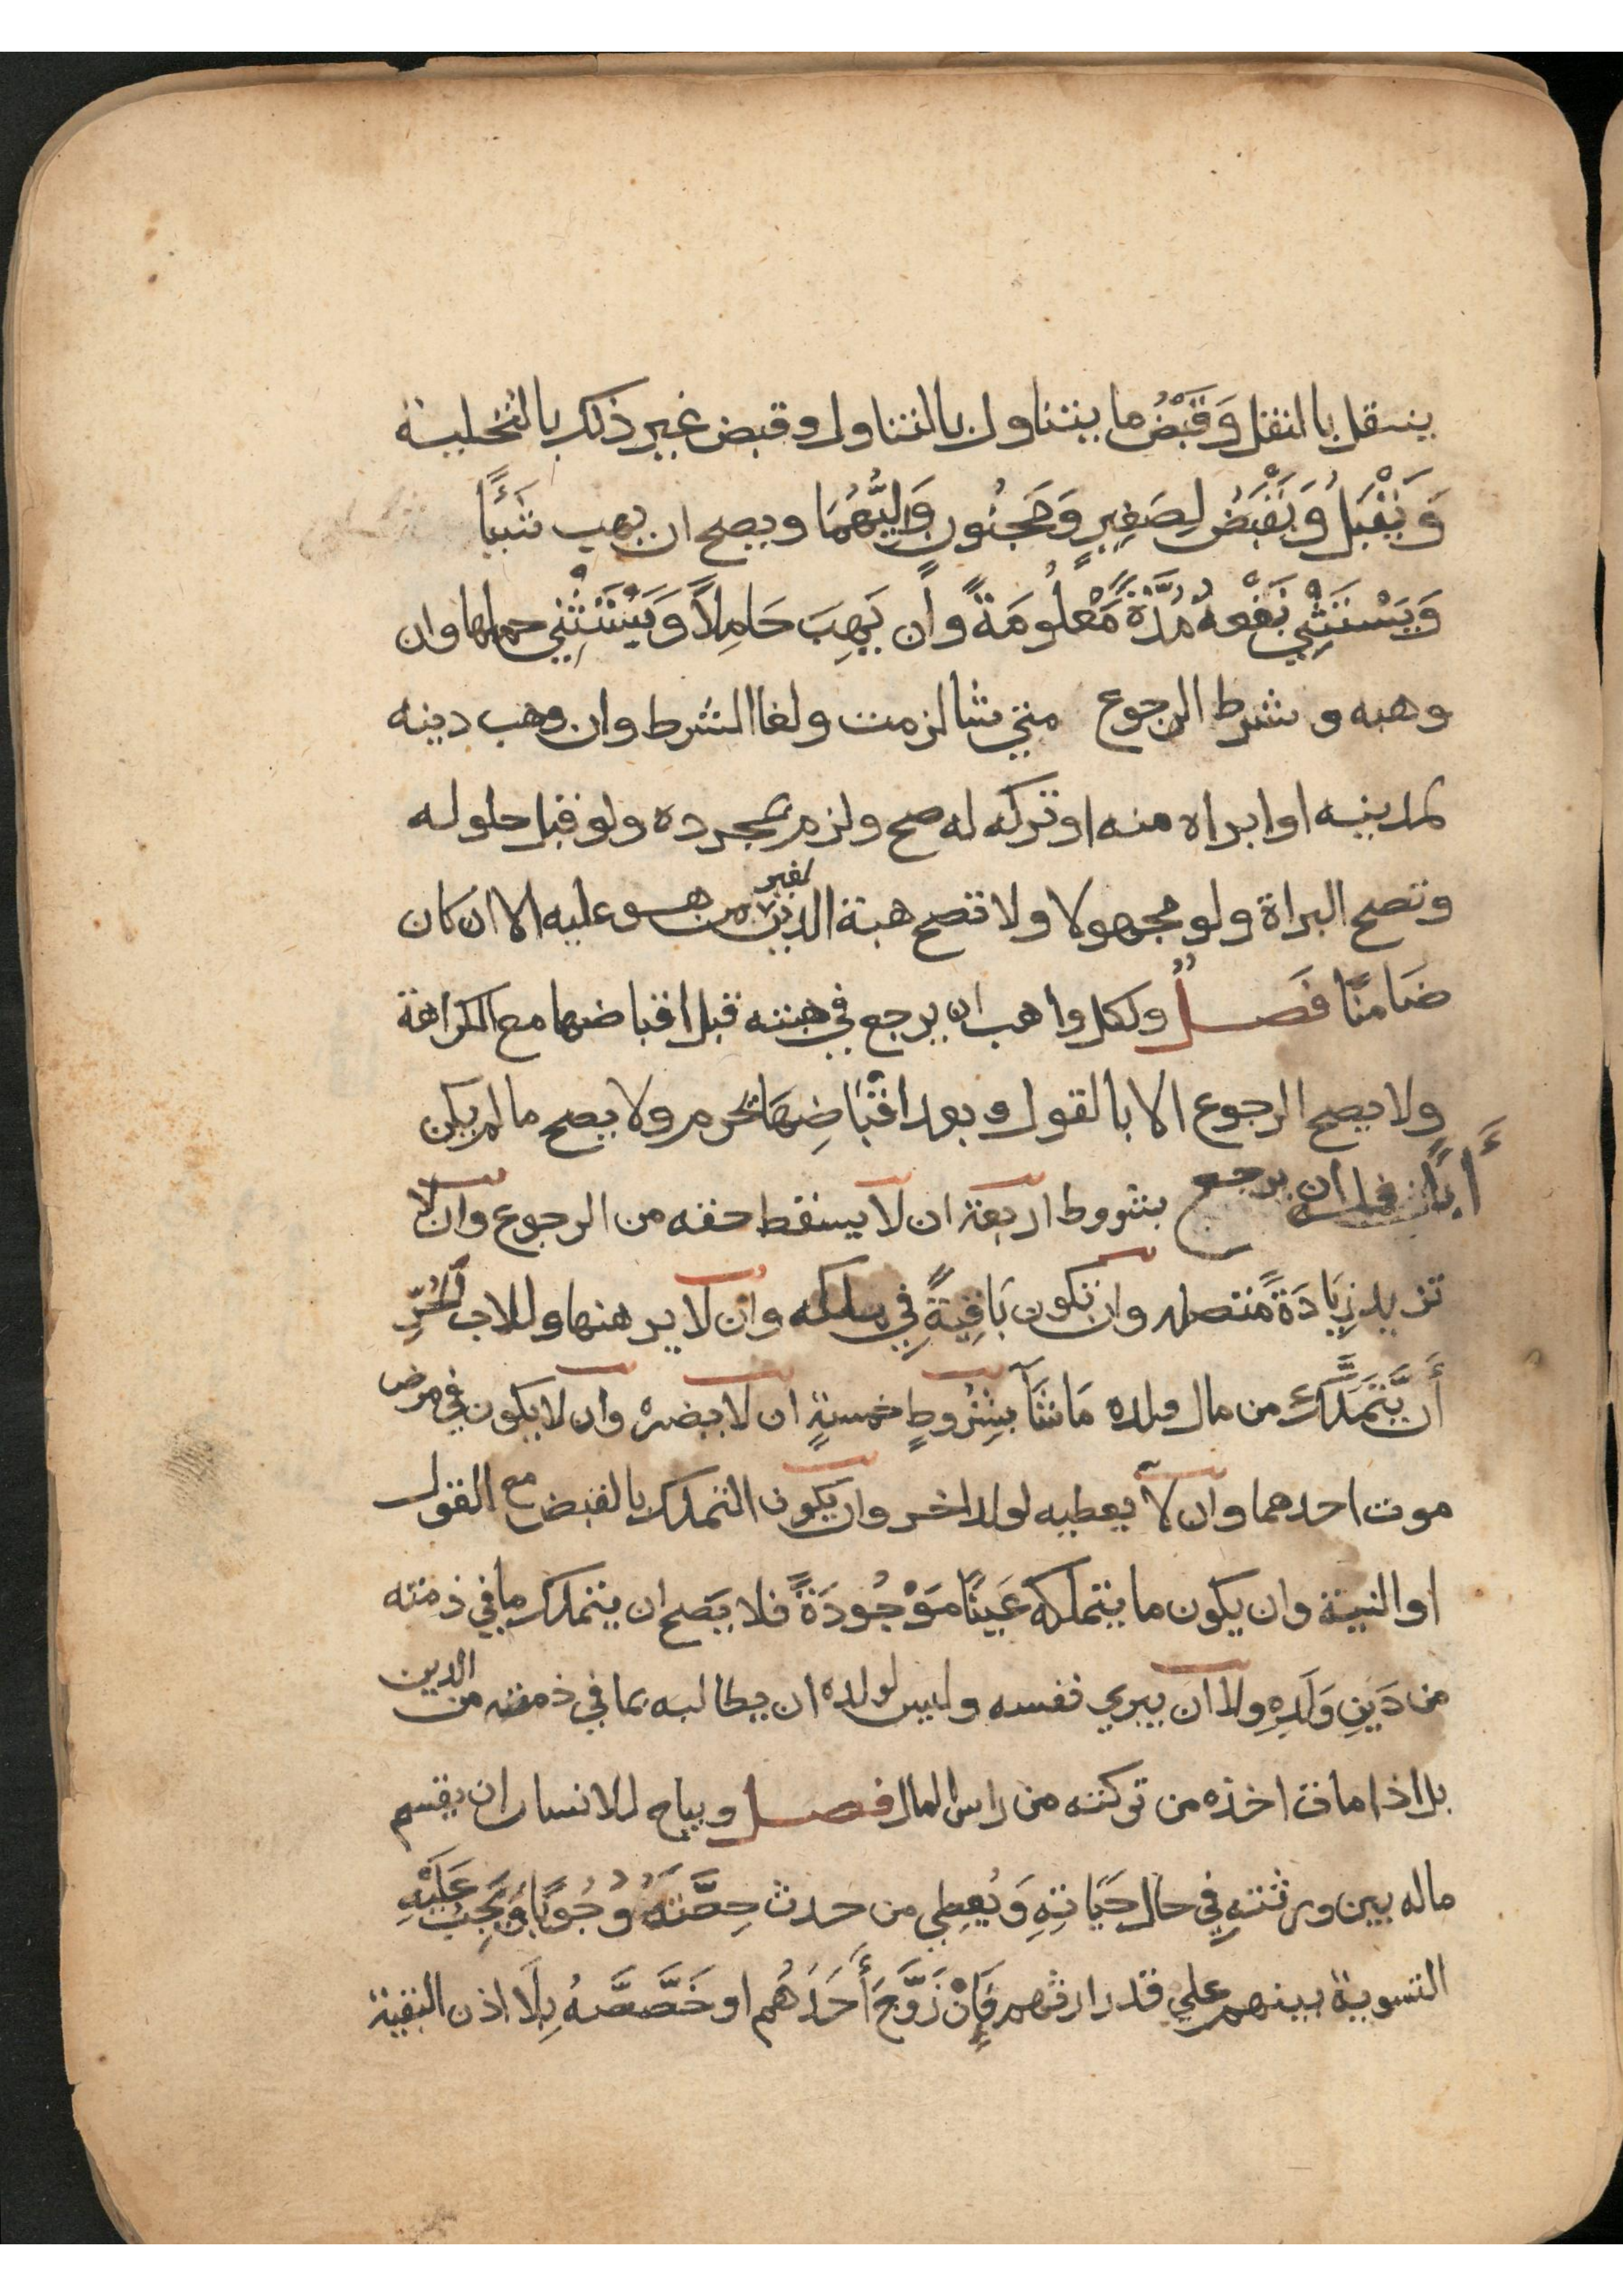 ينتقل بالنقل وَقَبْضُ ما يتناول بالتناول وقبض غير ذلك بالتخلية
وَيَقْبَلُ وَيَقْبَضُ لِصَغِيرٍ وَمَجنُونٍ وَلِيُّهُمَا ويصح ان يهب شَيْئًا
وَيَسْتَثْنِي نَفْعهُ مُدَّةً مَّعْلُومَةً وأن يَهِبَ حَامِلاً وَيَسْتَثْنِي حملها وان
وهبه وشرط الرجوع متي شا لزمت ولغا الشرط وان وهب دينه
لمدينه او ابراه منه او تركه له صح ولزم بمجرده ولو قبل حلوله
وتصح البراة ولو مجهولا ولا تصح هبة الدين لغير من هو عليه الا ان كان
ضَامنًا فَصــلٌ ولكل واهب ان يرجع في هبته قبل اقباضها مع الكراهة
ولا يصح الرجوع الا بالقول وبعد اقْبَاضِهَا تحرم ولا يصح ما لم يكن
أَبًا فله ان يرجع بشروط اربعة ان لا يسقط حقه من الرجوع وان لا
تزيد زِيَادَةً متصله وان تكون بَاقِيَةً فِي ملكه وان لا يرهنها وللاب الْحُرِّ
أَن يَّتَمَلَّك من مال ولده مَا شَآ بِشُرُوطٍ خمسةٍ ان لا يضره وان لا يكون في مرض
موت احدهما وان لا يعطيه لولد اخر وان يكون التملك بالقبض مع القول
او النية وان يكون ما يتملكه عَينًا مَوْجُودَةً فلا يَصح ان يتملك ما في ذمته
من دَينِ وَلَدِهِ ولا ان يبري نفسه وليس لولده ان يطالبه بما في ذمته من الدين
بل اذا مات اخذه من تركته من راس المال فصــل ويباح للانسان ان يقسم
ماله بين ورثتهِ فِي حال حَيَاتِهِ وَيُعطِي من حدث حِصَّتَهُ وُجُوبًا وَيَجِبُ عَلَيْهِ
التسوية بينهم علي قدر ارثهم فَإِنْ زَوَّجَ أَحَدَهُم او خَصَّصَهُ بِلَا اذن البقية